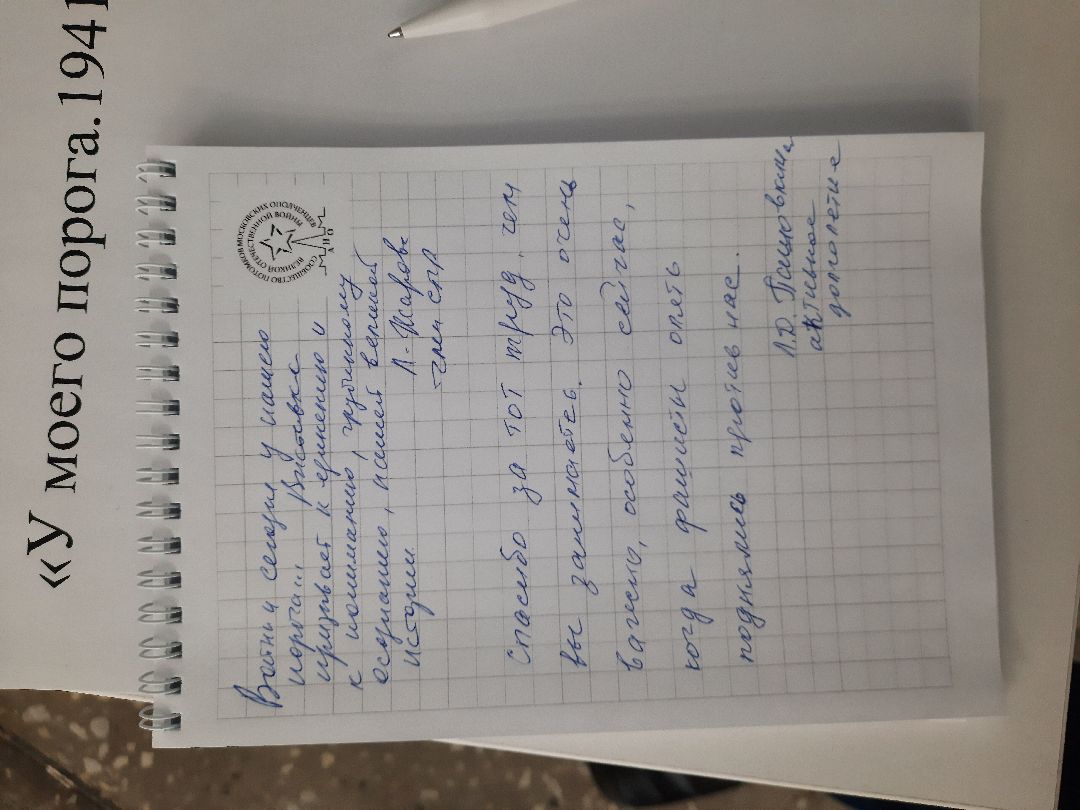 «У моего порога. 1941
СООБЩЕСТВО ПОТОМКОВ МОСКОВСКИХ ОПОЛЧЕНЦЕВ
ВЕЛИКОЙ ОТЕЧЕСТВЕННОЙ ВОЙНЫ
АНО
и сегодня у нашего
порога... Выставка
призывает к единению и
к пониманию, глубинному
осознанию, нашей великой
истории
Спасибо за тот труд, чем
вы занимаетесь. Это очень
важно, особенно сейчас,
когда фашисты опять
поднялись против нас.
Л.Ю.
активное
долголетие